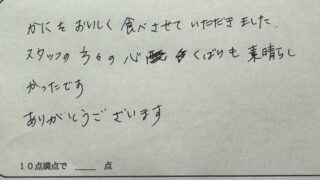 かにをおいしく食べさせていただきました.
スタッフの方々の心くばりも素晴らし
かったです
ありがとうございます
10点満点で ____ 点